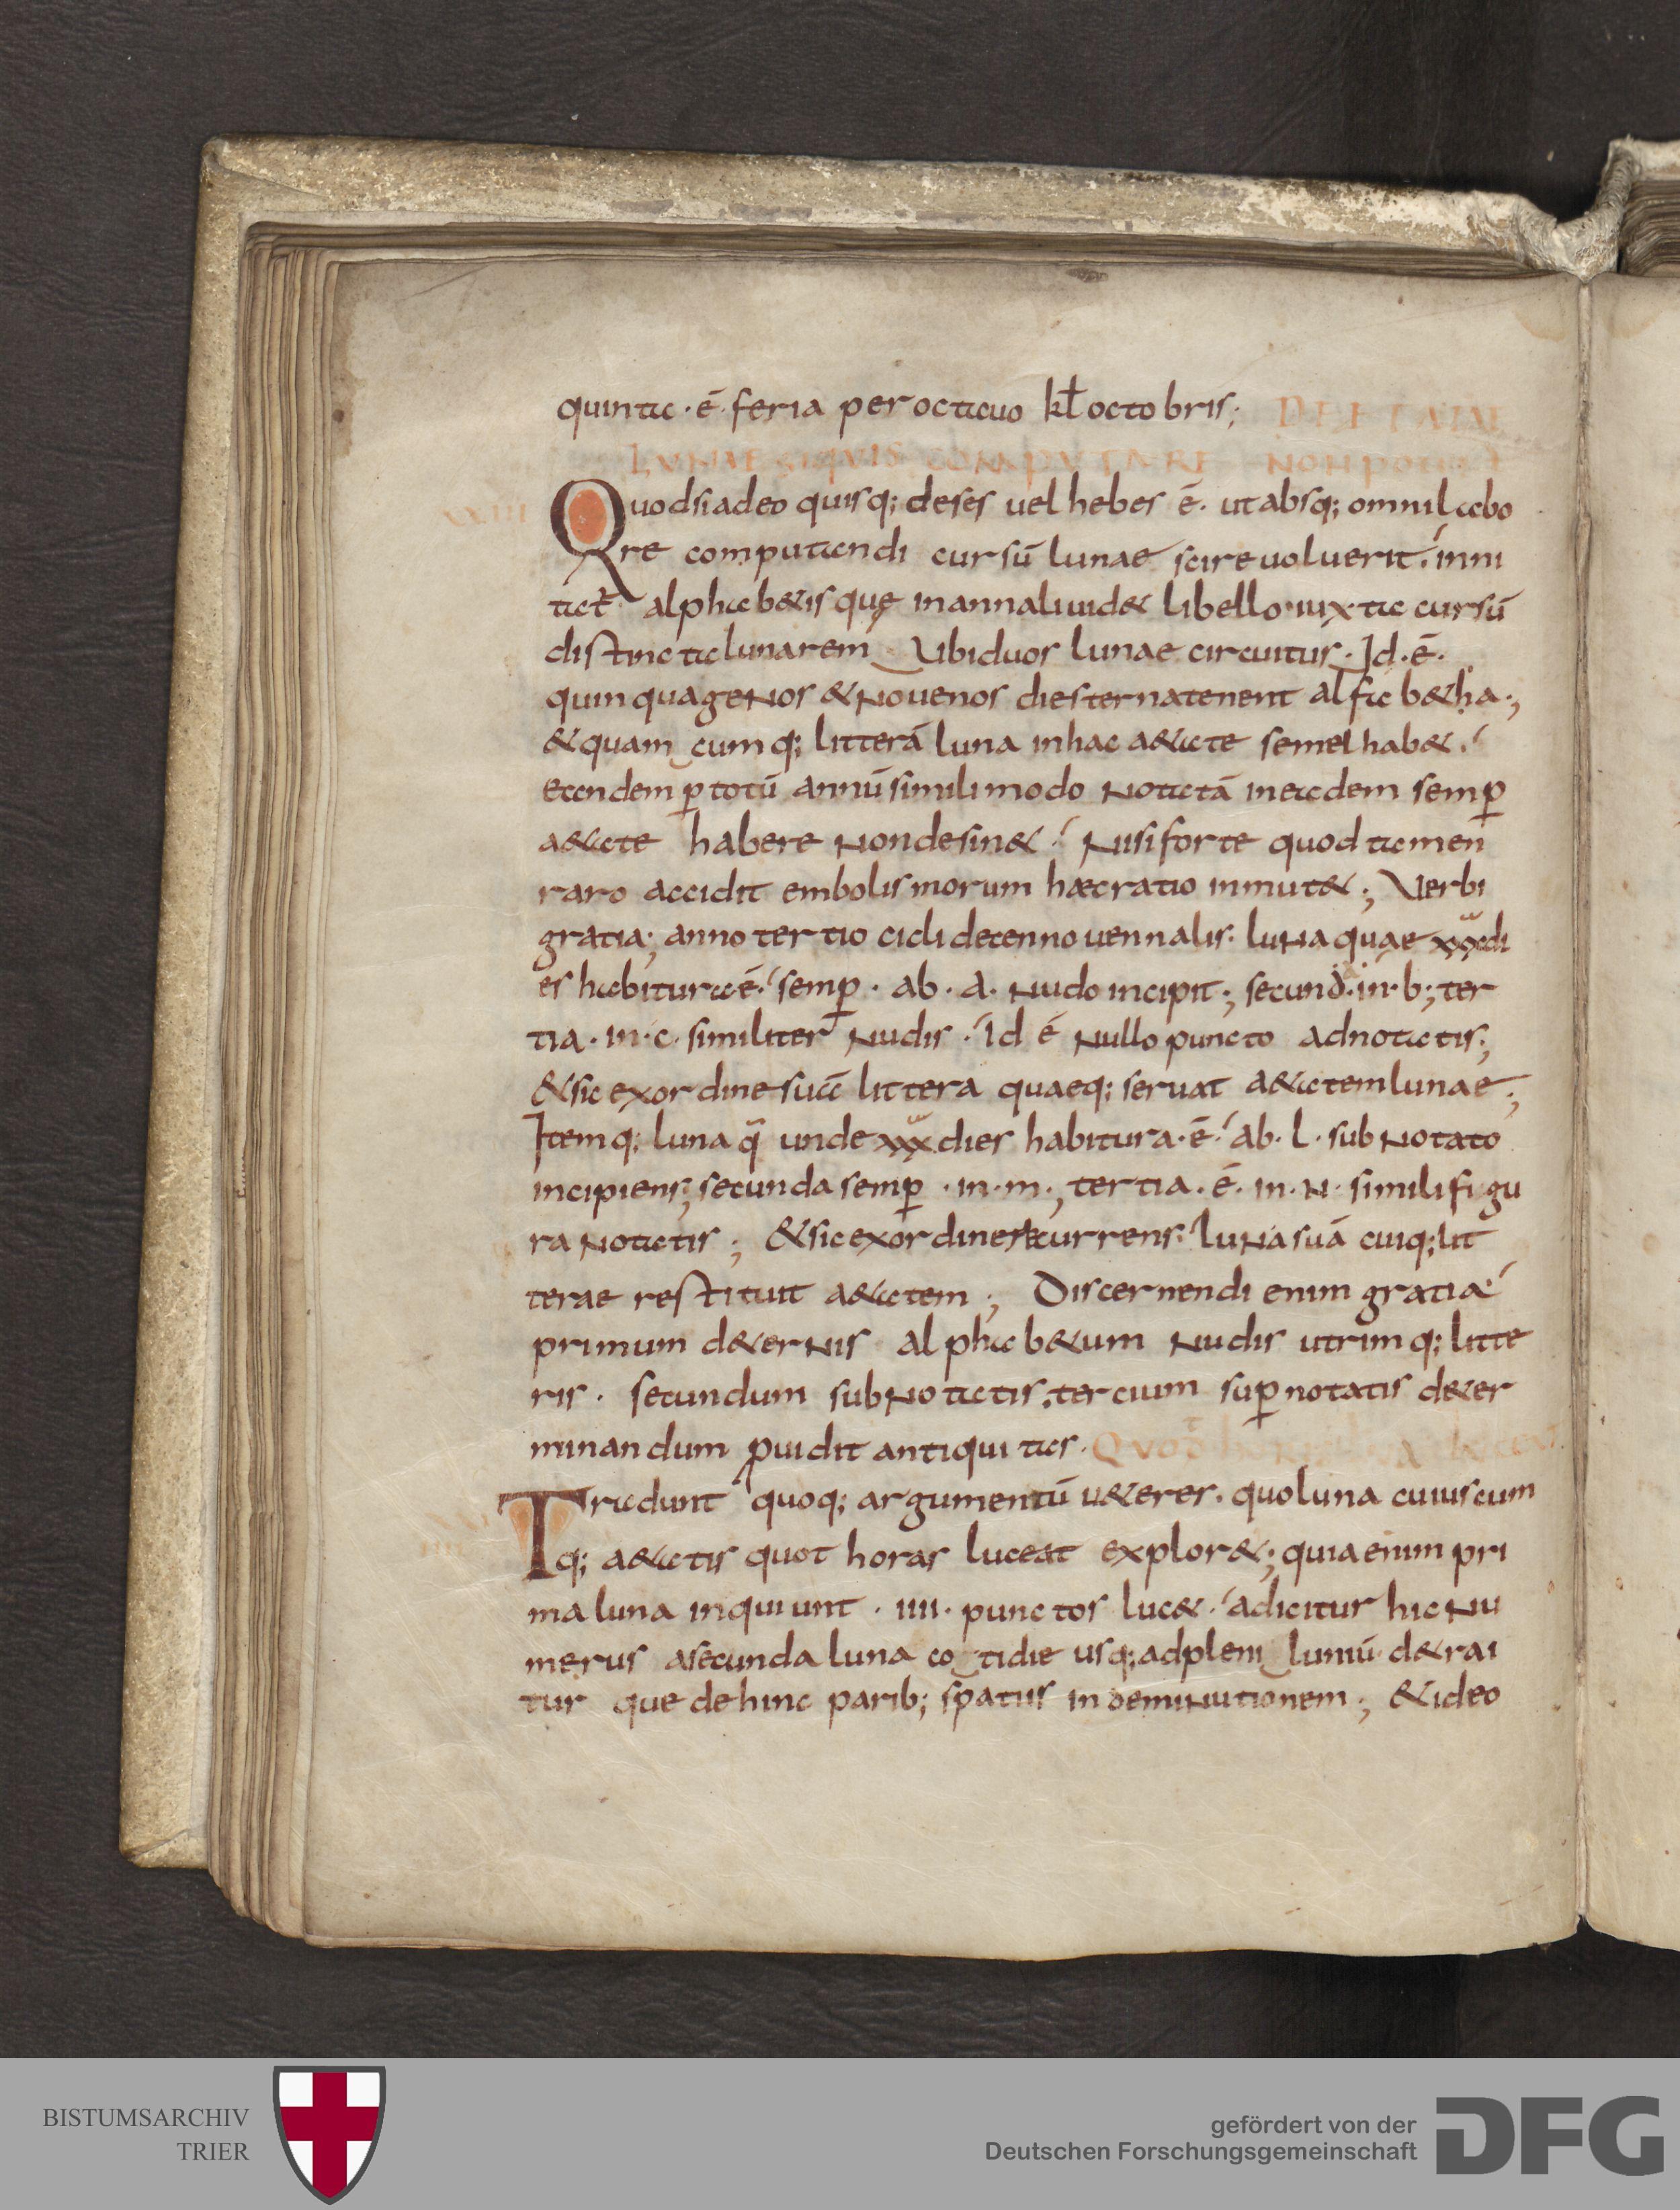 quinta · ē · feria per octauo kƚ octobris; DE ETATE
LUNAE SI QUIS COMPUTARE NON POTEST
XXIII
Quod si adeo quisq; deses uel hebes ē · ut absq; omni labo
re computandi cursū lunae scire uoluerit · inni
tat̄ alphab&is quę in annali uid& libello · iuxta cursū
distincta lunarem Ubi duos lunae circuitus · Id · ē ·
quinquagenos & nouenos dies terna tenent alfab&ha ·;
& quam cumq; litterā luna in hac a&ate semel hab& ·
eandem p̱ totū annū simili modo notatā in eadem semp̱
a&ate habere non desin& · Nisi forte quod tamen
raro accidit embolismorum hæc ratio inmut& ·; Uerbi
gratia; anno tertio cicli decennouennalis · luna quae xxx di
es habitura ē · semp̱ · ab · a · nudo incipit ·; secund · in · b ·; ter
tia · in · c · similiter nudis · id ē nullo puncto adnotatis;
& sic ex ordine suā littera quaeq; seruat a&atem lunae ·;
Itemq; luna q̄ unde xxx dies habitura · ē · ab · l · subnotato
incipiens; secunda semp̱ · in · m ·; tertia · ē · in · n · simili figu
ra notatis ·; & sic ex ordine recurrens · luna suā cuiq; lit
terae restituit a&atem ·; Discernendi enim gratia
primum d&ernis alphab&um nudis utrimq; litte
ris · secundum subnotatis · tercium sup̱notatis d&er
minandum p̱uidit antiquitas · QUOT
Tradunt quoq; argumentū u&eres · quo luna cuiuscum
q; a&atis quot horas luceat explor& ·; quia enim pri
ma luna inquiunt · IIII · punctos luc& · adicitur hic nu
merus a secunda luna cotidie usq; ad plenilunių d&rai
tur que dehinc parib; spatiis in deminutionem ·; & ideo
BISTUMSARCHIV
TRIER
gefördert von der
Deutschen Forschungsgemeinschaft
DFG